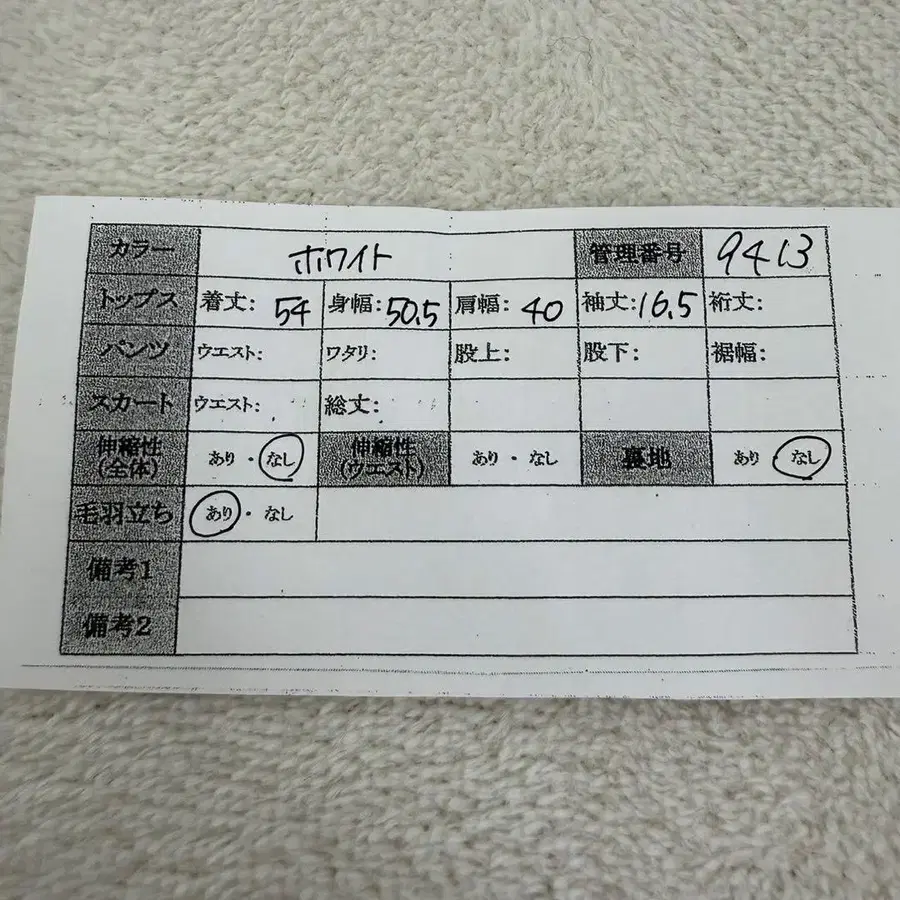 カラー ホワイト 管理番号 9413
トップス 着丈: 54 身幅: 50.5 肩幅: 40 袖丈: 16.5 裄丈:
パンツ ウエスト: ワタリ: 股上: 股下: 裾幅:
スカート ウエスト: 総丈:
伸縮性(全体) あり・なし 伸縮性(ウエスト) あり・なし 裏地 あり なし
毛羽立ち あり・なし
備考1
備考2